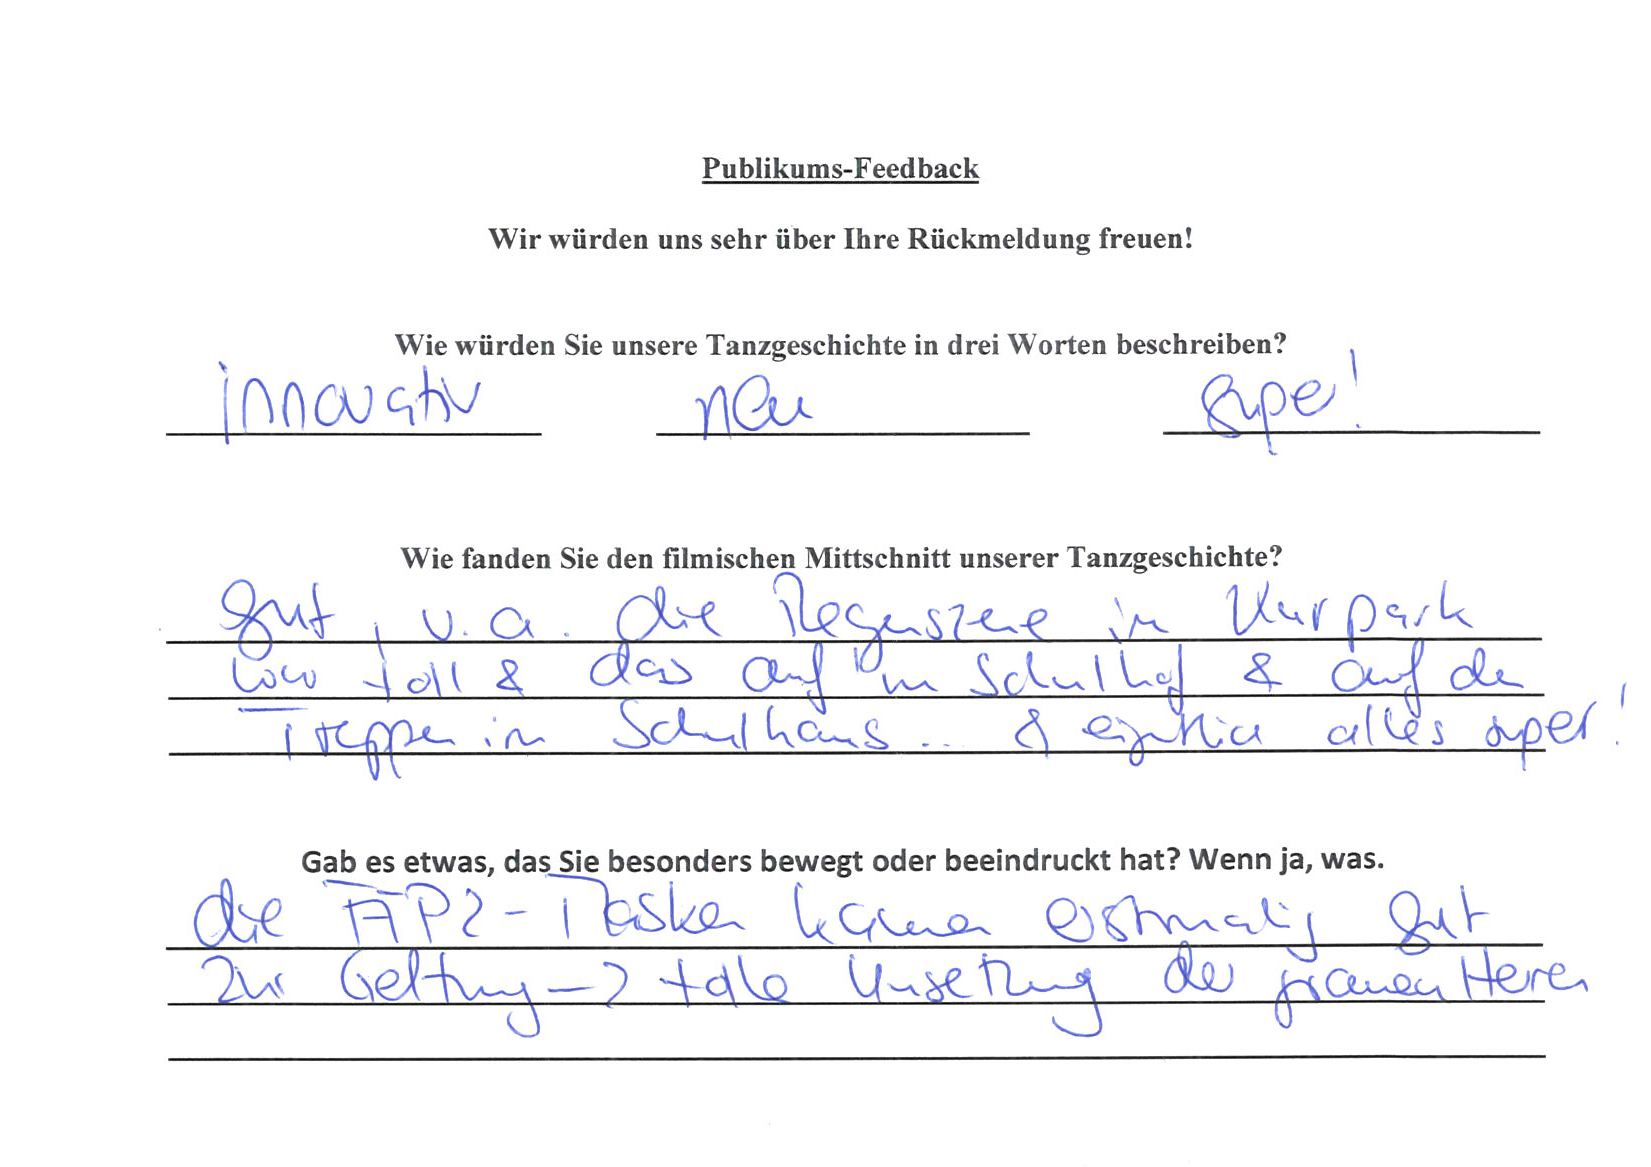 Publikums-Feedback
Wir würden uns sehr über Ihre Rückmeldung freuen!
Wie würden Sie unsere Tanzgeschichte in drei Worten beschreiben?
innovativ neu super!
Wie fanden Sie den filmischen Mittschnitt unserer Tanzgeschichte?
gut, v.a. die Regenszene im Kurpark
war toll & das auf'm Schulhof & auf den
Treppen im Schulhaus... & eigentlich alles super!
Gab es etwas, das Sie besonders bewegt oder beeindruckt hat? Wenn ja, was.
die FFP2-Masken kamen erstmalig gut
zur Geltung -> tolle Umsetzung der grauen Herren